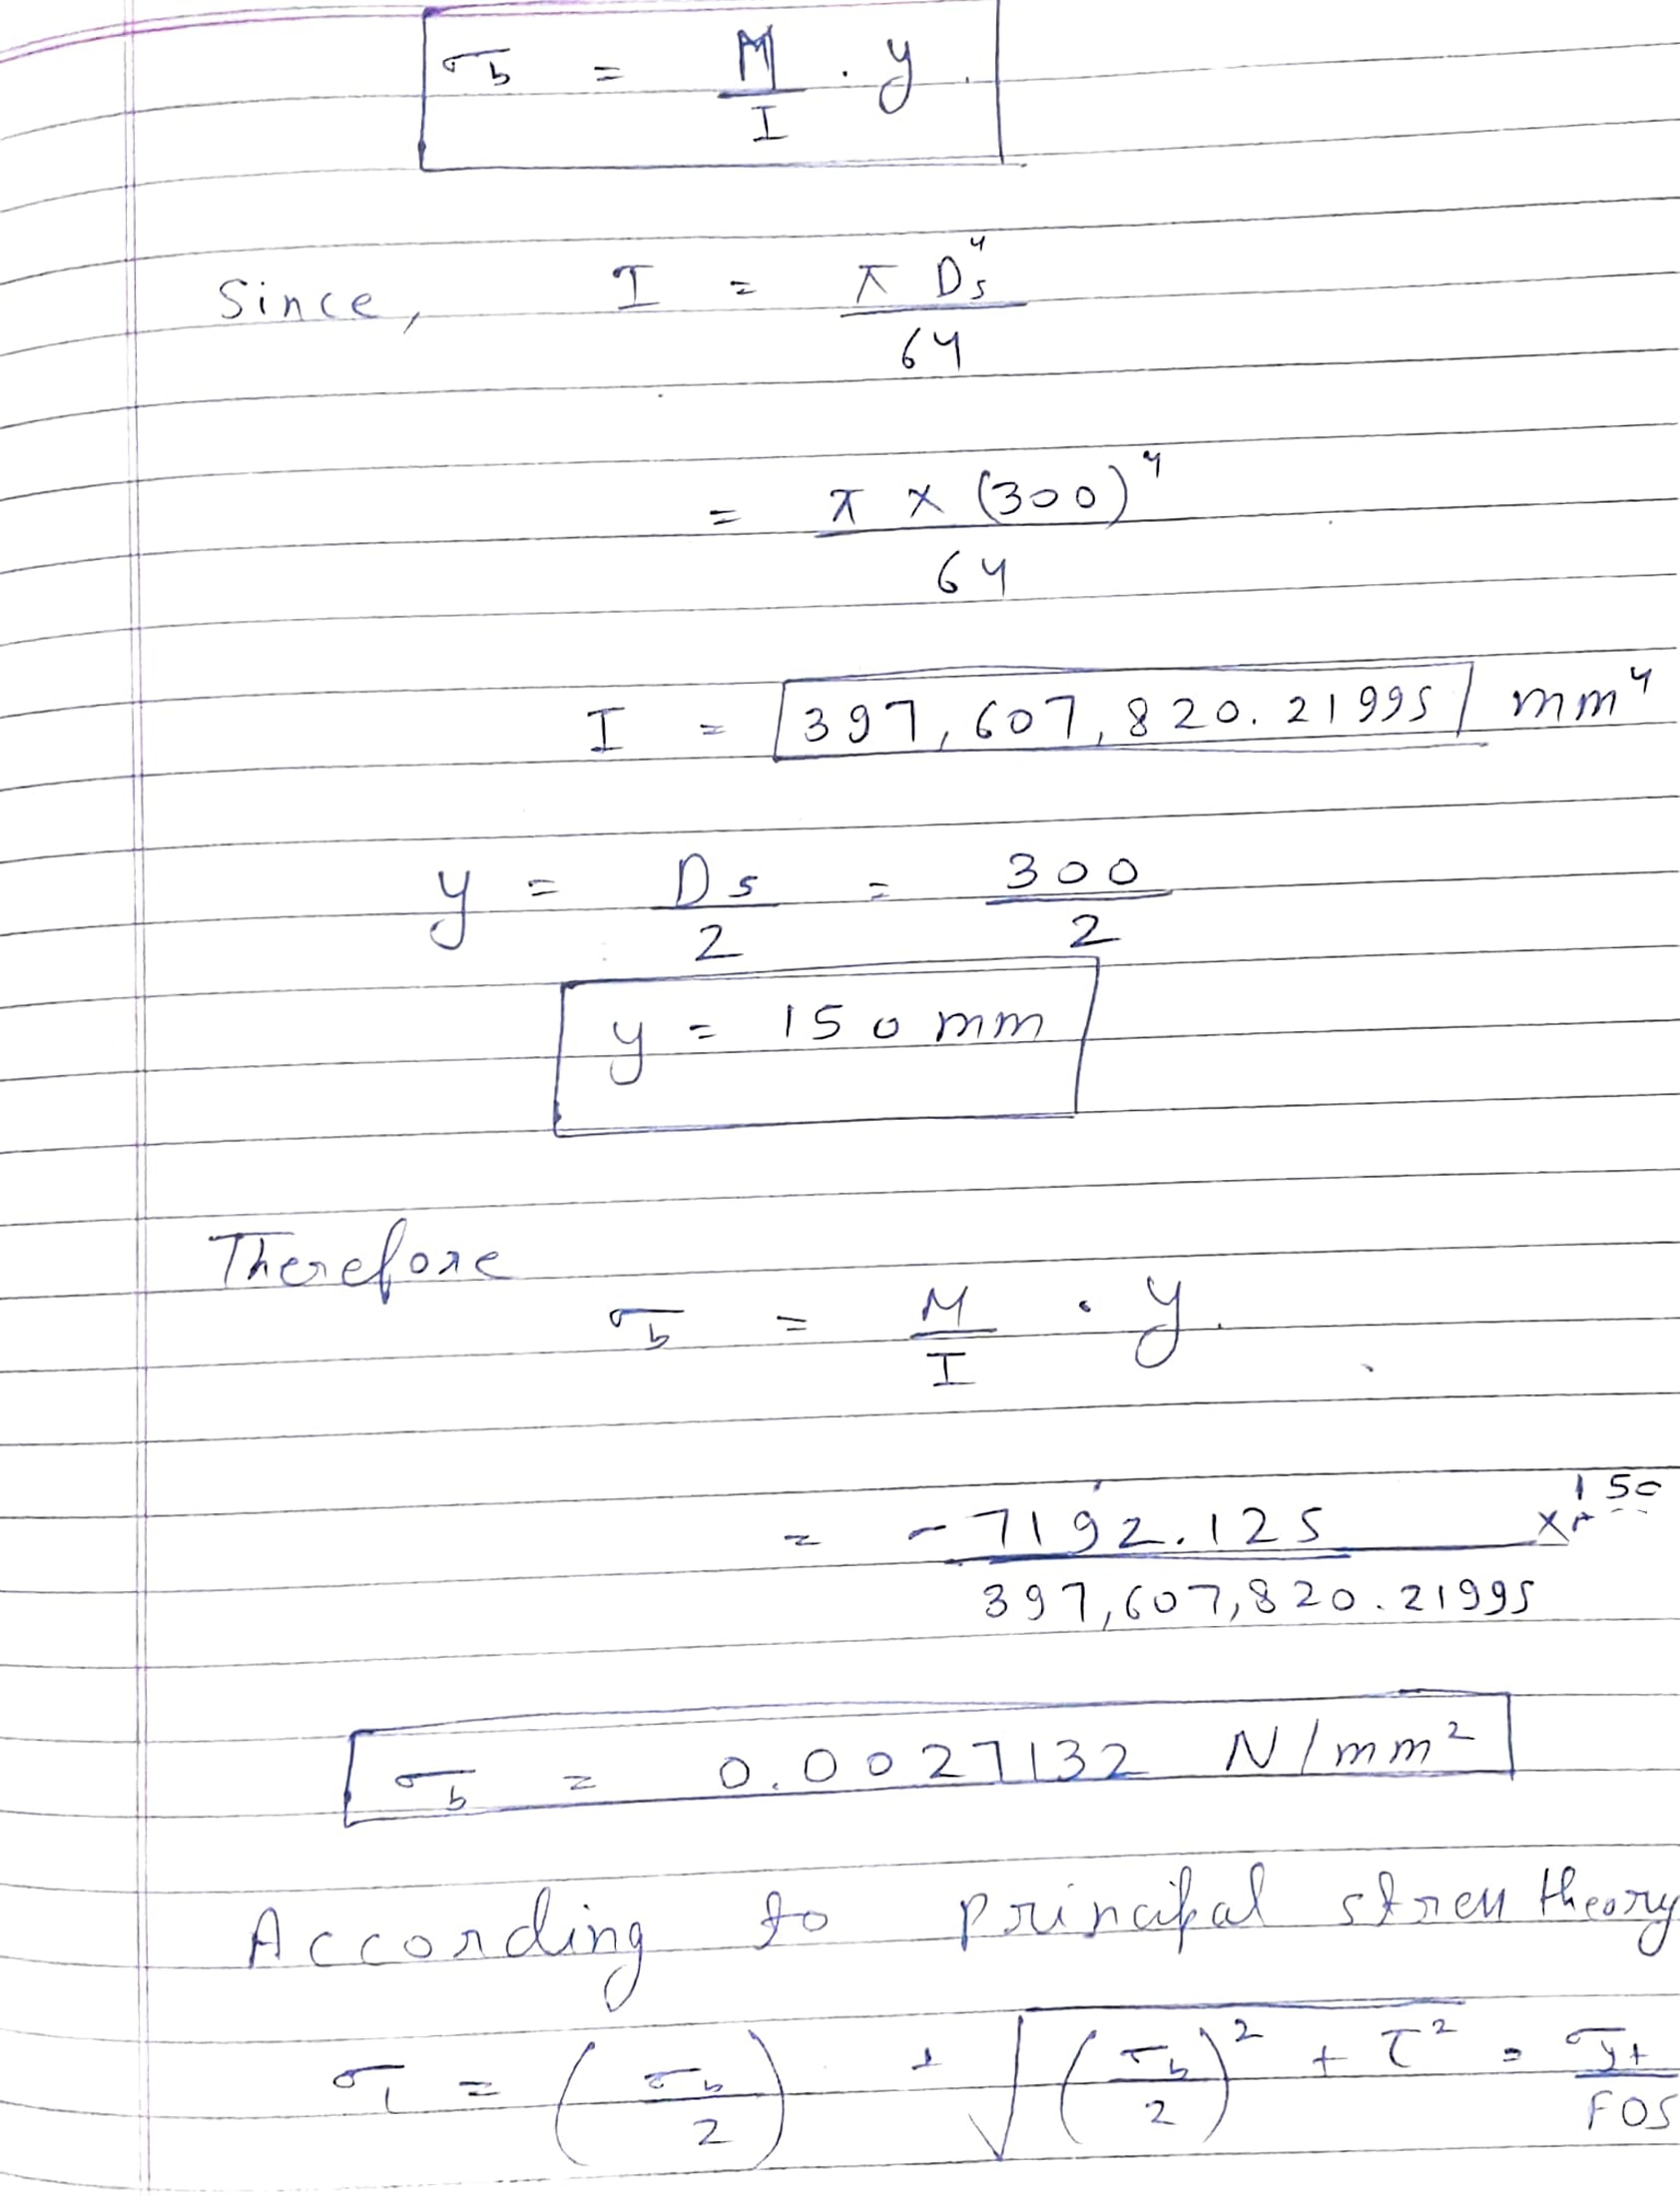 σb = M/I . y .
Since, I = π Ds⁴/64
= π × (300)⁴/64
I = 397,607,820.21995 mm⁴
y = Ds/2 = 300/2
y = 150 mm
Therefore
σb = M/I . y.
= -7192.125/397,607,820.21995 × 150
σb = 0.0027132 N/mm²
According to principal stress theory
σ1 = (σb/2) + √((σb/2)² + τ²) = σyt/FOS